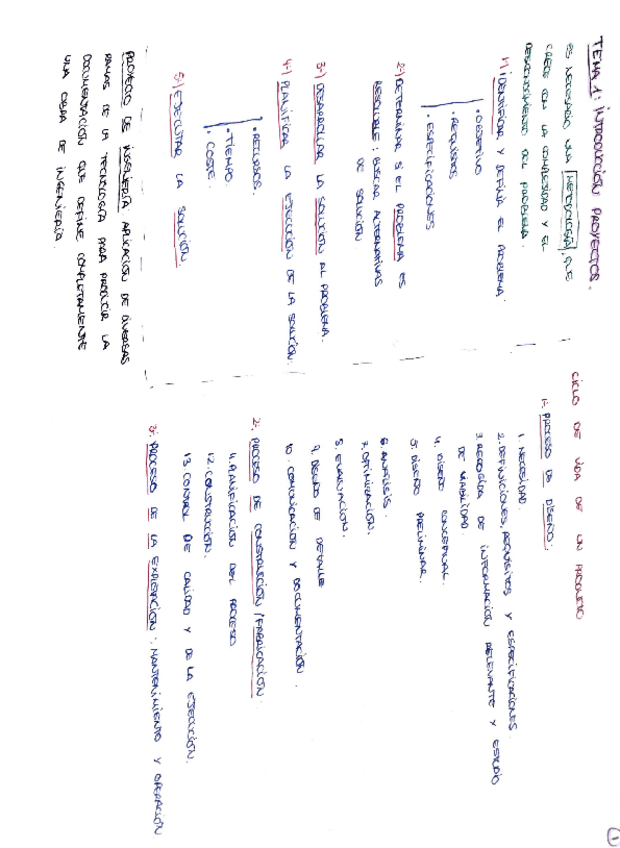 TEMA 1: INTRODUCCIÓN PROYECTOS.
ES NECESARIO UNA METODOLOGÍA QUE
CRECE CON LA COMPLEJIDAD Y EL
DESCONOCIMIENTO DEL PROBLEMA.
1-) IDENTIFICAR Y DEFINIR EL PROBLEMA.
· OBJETIVO
· REQUISITOS
· ESPECIFICACIONES
2-) DETERMINAR SI EL PROBLEMA ES
RESOLUBLE: BUSCAR ALTERNATIVAS
DE SOLUCIÓN
3-) DESARROLLAR LA SOLUCIÓN AL PROBLEMA.
4-) PLANIFICAR LA EJECUCIÓN DE LA SOLUCIÓN.
· RECURSOS.
· TIEMPO.
· COSTE.
5-) EJECUTAR LA SOLUCIÓN.
PROYECTO DE INGENIERÍA: APLICACIÓN DE DIVERSAS
RAMAS DE LA TECNOLOGÍA PARA PRODUCIR LA
DOCUMENTACIÓN QUE DEFINE COMPLETAMENTE
UNA OBRA DE INGENIERÍA.
CICLO DE VIDA DE UN PRODUCTO
1. PROCESO DE DISEÑO:
1. NECESIDAD.
2. DEFINICIONES, REQUISITOS Y ESPECIFICACIONES.
3. RECOGIDA DE INFORMACIÓN RELEVANTE Y ESTUDIO
DE VIABILIDAD.
4. DISEÑO CONCEPTUAL.
5. DISEÑO PRELIMINAR.
6. ANÁLISIS.
7. OPTIMIZACIÓN.
8. EVALUACIÓN.
9. DISEÑO DE DETALLE
10. COMUNICACIÓN Y DOCUMENTACIÓN.
2. PROCESO DE CONSTRUCCIÓN/FABRICACIÓN.
11. PLANIFICACIÓN DEL PROCESO
12. CONSTRUCCIÓN.
13. CONTROL DE CALIDAD Y DE LA EJECUCIÓN.
3. PROCESO DE LA EXPLOTACIÓN: MANTENIMIENTO Y OPERACIÓN